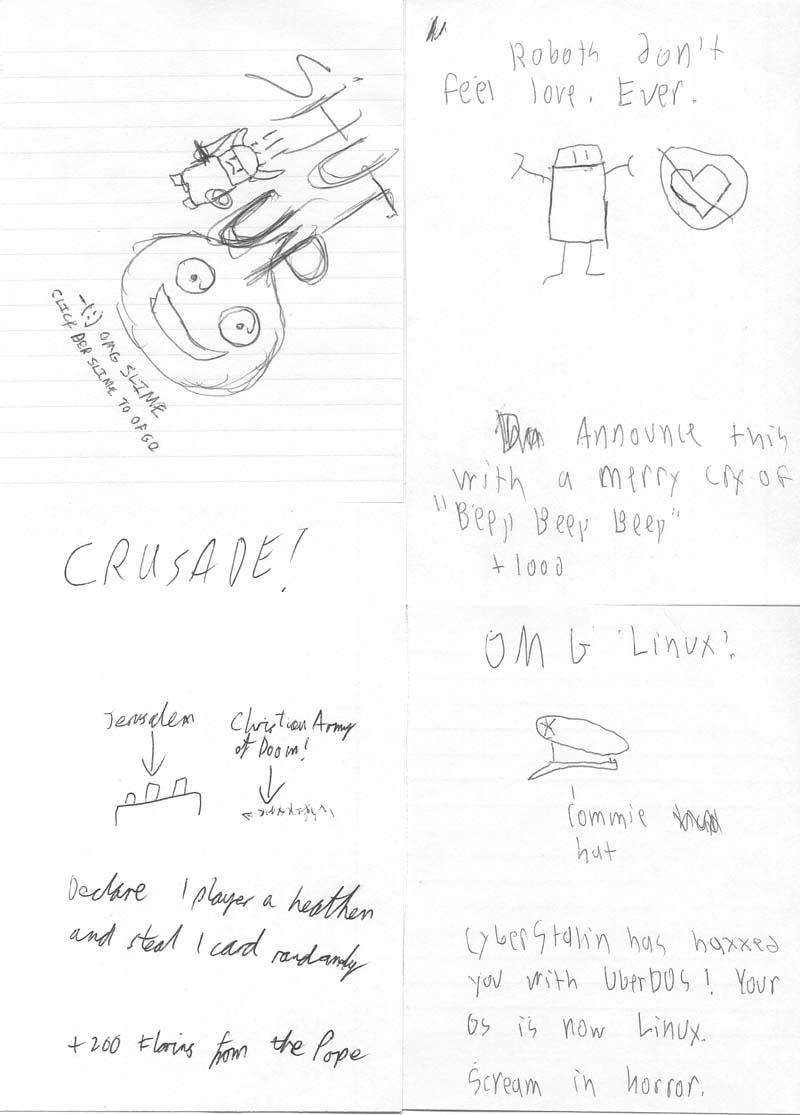 SHUT
UP
-(:) OMG SLIME
CLICK DER SLIME TO OF GO
Roboth don't
feel love. Ever.
Announce this
with a merry cry of
"Beep Beep Beep"
+1000
CRUSADE!
Jerusalem
Christian Army
of Doom!
Declare 1 player a heathen
and steal 1 card randomly
+200 florins from the Pope
OMG 'Linux'.
commie
hat
CyberStalin has haxxed
you with UberDOS! Your
OS is now Linux.
Scream in horror.